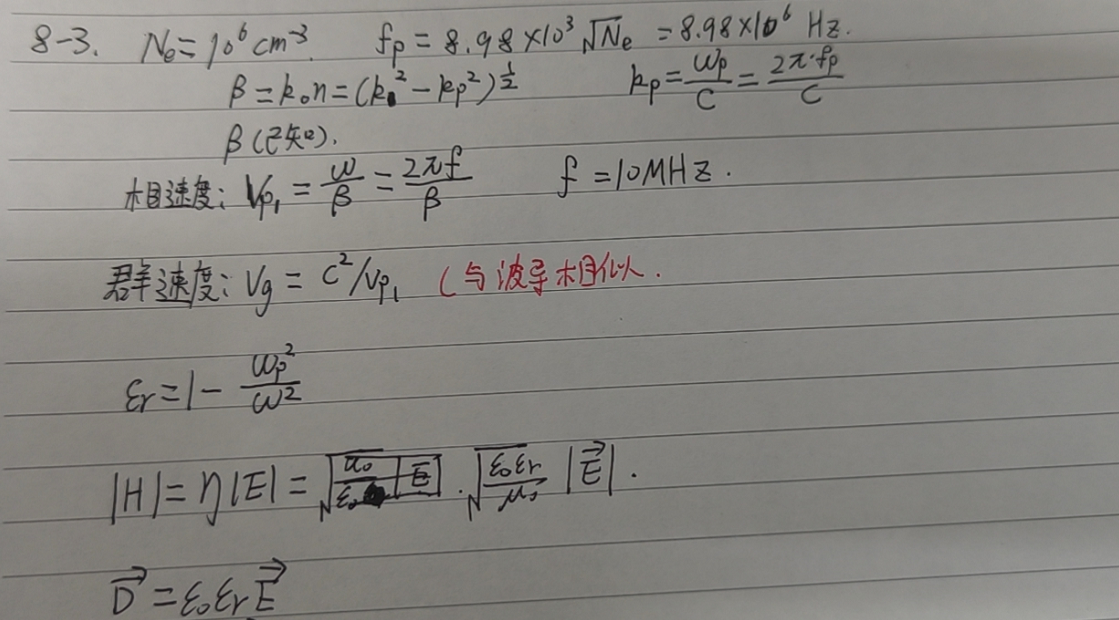 8-3. N₀=10⁶cm⁻³. fp=8.98×10³√Ne =8.98×10⁶ Hz.
β=k₀n=(k₀²-kp²)^½ kp=ωp/C=2π·fp/C
β(已知).
相速度: Vp₁=ω/β=2πf/β f=10MHz.
群速度: Vg=C²/Vp₁ (与波导相似.
εr=1-ωp²/ω²
|H|=η|E|=√(ε₀εr/μ₀) |E⃗|.
D⃗=ε₀εrE⃗